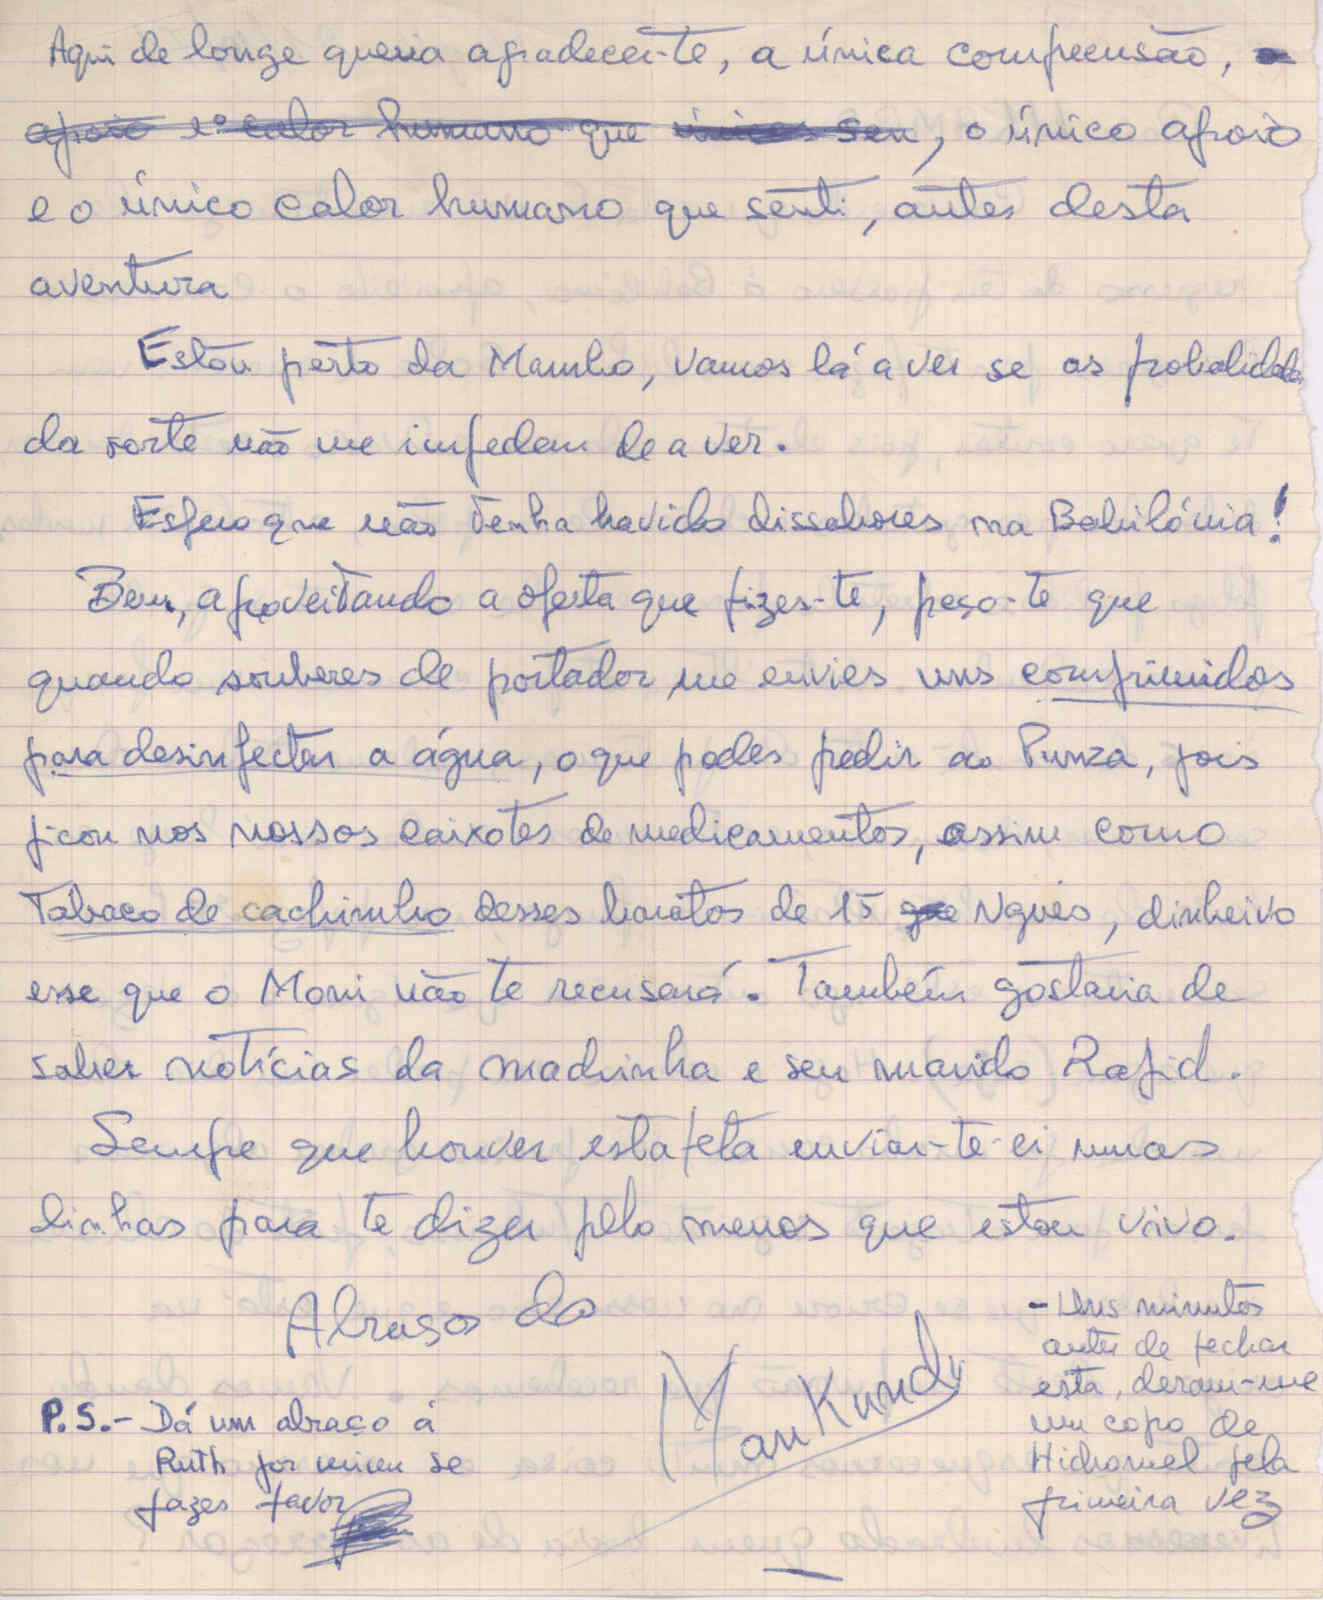 Aqui de longe queria agradecer-te, a única compreensão,
apoio e o calor humano que senti, o único apoio
e o único calor humano que senti, antes desta
aventura
Estou perto da Mamho, vamos lá a ver se as probalidades
da sorte não me impedem de a ver.
Espero que não tenha havido dissabores na Babilónia!
Bem, aproveitando a oferta que fizes-te, peço-te que
quando souberes de portador me envies uns comprimidos
para desinfectar a água, o que podes pedir ao Punza, pois
ficou nos nossos caixotes de medicamentos, assim como
Tabaco de cachimbo desses baratos de 15 Ngués, dinheiro
esse que o Moni não te recusará. Também gostaria de
saber notícias da madrinha e seu marido Rafid.
Sempre que houver estafeta enviar-te-ei umas
linhas para te dizer pelo menos que estou vivo.
Abraços do
ManKundu
P.S.- Dá um abraço á
Ruth por mim se
fazes favor
- Uns minutos
antes de fechar
esta, deram-me
um copo de
Hidromel pela
primeira vez